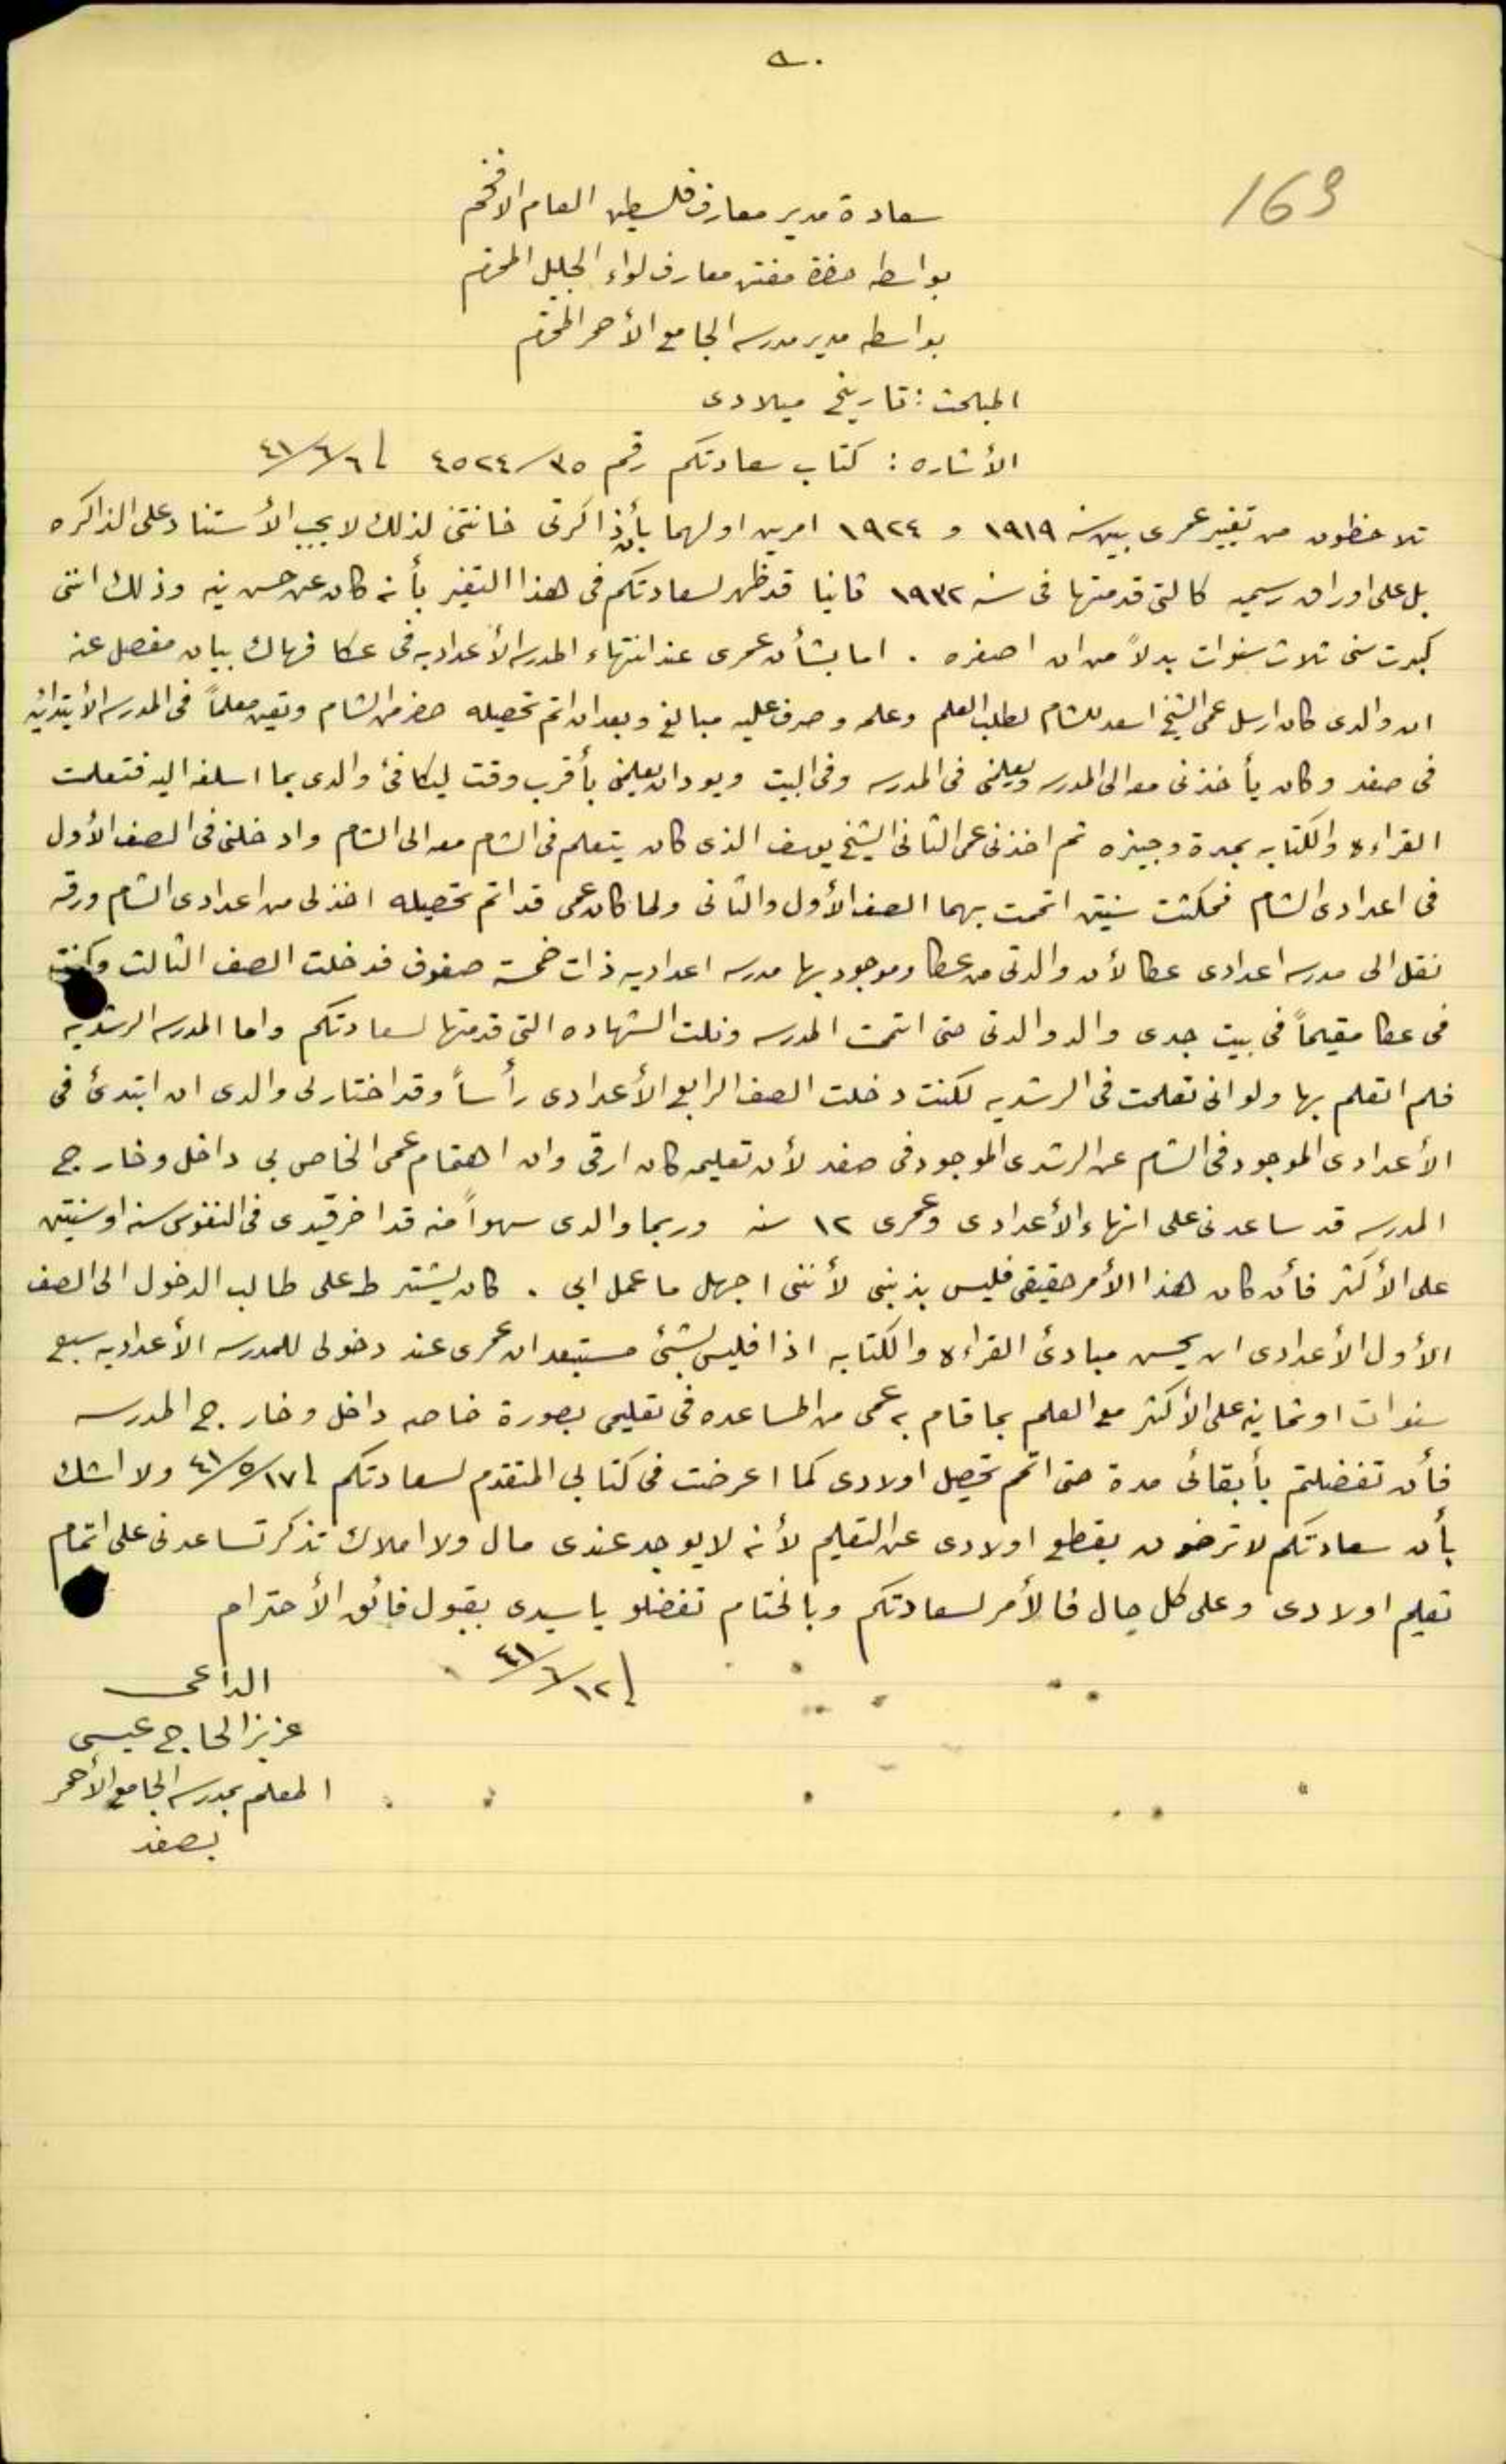 163
سعادة مدير معارف فلسطين العام الافخم
بواسطه حضرة مفتش معارف لواء الجليل المحترم
بواسطه مدير مدرسه الجامع الأحمر المحترم
المبحث : تاريخ ميلادى
الأشاره : كتاب سعادتكم رقم ٣٥/٤٥٢٤ تا ٦/٦/٤١
تلاحظون من تغيير عمرى بين سنه ١٩١٩ و ١٩٢٤ امرين اولهما بأن ذاكرتى خانتنى لذلك لا يجب الأستناد على الذاكره
بل على اوراق رسميه كالتى قدمتها فى سنه ١٩٣٢ ثانيا قد ظهر لسعادتكم فى هذا التغير بأنه كان عن حسن نيه وذلك اننى
كبرت سنى ثلاث سنوات بدلاً من ان اصغره . اما بشأن عمرى عند انتهاء المدرسه الأعداديه فى عكا فهاك بيان مفصل عنه
ان والدى كان ارسل عمى الشيخ اسعد للشام لطلب العلم وعلمه وصرف عليه مبالغ وبعد ان اتم تحصيله حضر من الشام وتعين معلماً فى المدرسه الأبتدائيه
فى صفد وكان يأخذنى معه الى المدرسه ويعلمنى فى المدرسه وفى البيت ويود ان يعلمنى بأقرب وقت ليكافئ والدى بما اسلفه اليه فتعلمت
القراءه والكتابه بمدة وجيزه ثم اخذنى عمى الثانى الشيخ يوسف الذى كان يتعلم فى الشام معه الى الشام وادخلنى فى الصف الأول
فى اعدادى الشام فمكثت سنيتن اتممت بهما الصف الأول والثانى ولما كان عمى قد اتم تحصيله اخذ لى من اعدادى الشام ورقه
نقل الى مدرسه اعدادى عكا لأن والدتى من عكا وموجود بها مدرسه اعداديه ذات خمسة صفوف فدخلت الصف الثالث وكنت
فى عكا مقيماً فى بيت جدى والد والدتى حتى اتممت المدرسه ونلت الشهاده التى قدمتها لسعادتكم واما المدرسه الرشديه
فلم اتعلم بها ولو انى تعلمت فى الرشديه لكنت دخلت الصف الرابع الأعدادى رأساً وقد اختار لى والدى ان ابتدئ فى
الأعدادى الموجود فى الشام عن الرشدى الموجود فى صفد لأن تعليمه كان ارقى وان اهتمام عمى الخاص بى داخل وخارج
المدرسه قد ساعدنى على انهاء الأعدادى وعمرى ١٢ سنه وربما والدى سهواً منه قد اخر قيدى فى النفوس سنه او سنيتن
على الأكثر فأن كان هذا الأمر حقيقى فليس بذنبى لأننى اجهل ما عمل ابى . كان يشترط على طالب الدخول الى الصف
الأول الأعدادى ان يحسن مبادئ القراءه والكتابه اذا فليس بشئ مستبعد ان عمرى عند دخولى للمدرسه الأعداديه سبع
سنوات او ثمانيه على الأكثر مع العلم بما قام به عمى من المساعده فى تعليمى بصورة خاصه داخل وخارج المدرسه
فأن تفضلتم بأبقائى مدة حتى اتمم تحصيل اولادى كما اعرضت فى كتابى المتقدم لسعادتكم تا ١٧/٥/٤١ ولا اشك
بأن سعادتكم لا ترضون بقطع اولادى عن التعليم لأنه لا يوجد عندى مال ولا املاك تذكر تساعدنى على اتمام
تعليم اولادى وعلى كل حال فالأمر لسعادتكم وبالختام تفضلو يا سيدى بقبول فائق الأحترام
تا ١٢/٦/٤١
الداعى
عزيز الحاج عيسى
المعلم بمدرسه الجامع الأحمر
بصفد